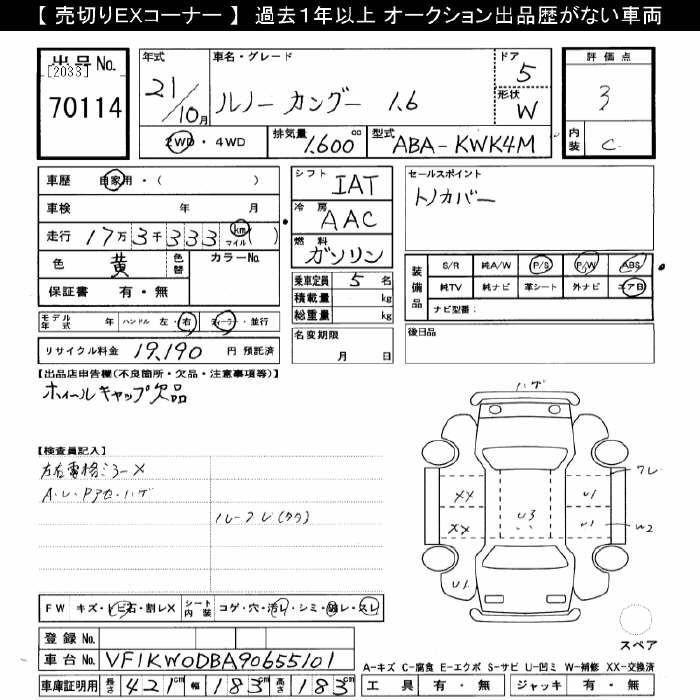 【 売切りEXコーナー 】 過去1年以上 オークション出品歴がない車両
出品No.
[2033]
70114
年式
21/10月
車名・グレード
ルノー カングー 1.6
ドア
5
形状
W
評価点
3
内装
C
2WD・4WD
排気量
1,600 cc
型式
ABA-KWK4M
車歴 自家用・( )
車検 年 月
走行 17万3千333 km マイル ( )
色 黄 色替 カラーNo.
保証書 有・無
シフト IAT
冷房 AAC
燃料 ガソリン
乗車定員 5 名
積載量 kg
総重量 kg
セールスポイント
トノカバー
装備品
S/R 純A/W P/S P/W ABS
純TV 純ナビ 革シート 外ナビ エアB
ナビ型番:
モデル年式 年 ハンドル 左・右 ディーラー・並行
リサイクル料金 19,190 円 預託済
名変期限
月 日
後日品
【出品店申告欄(不良箇所・欠品・注意事項等)】
ホイールキャップ欠品
【検査員記入】
左右電格ミラーX
ハゲ
ワレ
XX
U1
U3
XX
U1
W2
U1
スペア
FW キズ・トビ石・割レX シート内装 コゲ・穴・汚レ・シミ・切レ・スレ
登録No.
車台No. VF1KW0DBA90655101
車庫証明用 長さ 421cm 幅 183cm 高さ 183cm
A-キズ C-腐食 E-エクボ S-サビ U-凹ミ W-補修 XX-交換済
工具 有・無 ジャッキ 有・無